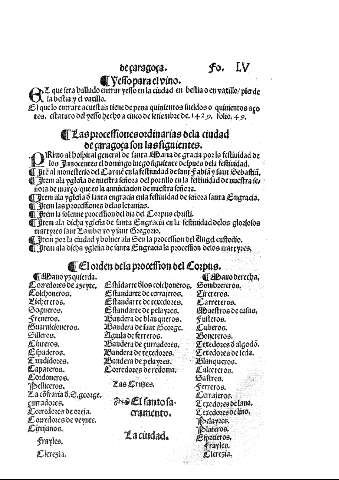 de çaragoça. Fo. LV
¶ Yesso para el vino.
El que sera hallado entrar yesso en la ciudad en bestia o en vasillo / pierde
la bestia y el vasillo.
El que lo entrare acuestas tiene de pena quinientos sueldos o quinientos aço
tes. estatuto del yesso hecho a cinco de setiembre de 1429. folio.49.
¶ Las processiones ordinarias de la ciudad
de çaragoça son las siguientes.
PRimo al hospital general de santa Maria de gracia por la festiuidad de
los Innocentes el domingo luego siguiente despues de la festiuidad.
¶ Ite al monesterio del Carmē en la festiuidad de sant Fabiā y sant Sebastiā.
¶ Item ala yglesia de nuestra señora del portillo en la festiuidad de nuestra se
ñora de março que es la annunciacion de nuestra señora.
¶ Item ala yglesia d santa engracia en la festiuidad de señora santa Engracia.
¶ Item las processiones de las letanias.
¶ Item la solenne procession del dia del Corpus christi.
¶ Item ala dicha yglesia de santa Engracia en la festiuidad de los gloriosos
martyres sant Lamberto y sant Gregorio.
¶ Item por la ciudad y boluer ala Seu la procession del Angel custodio.
¶ Item ala dicha yglesia de santa Engracia la procession de los martyres.
¶ El orden de la procession del Corpus.
¶ Mano yzquierda.
Corredores de azeyte.
Colchoneros.
Sogueros.
Freneros.
Guarnicioneros.
Silleros.
Çapateros.
Cordoneros.
Pelliceros.
La cōfraria d S. george.
çurradores.
Corredores de oreja.
Cirujanos.
Frayles.
Clerezia.
Estādarte dlos colchoneros.
Estandarte de cerrajeros.
Estandarte de texedores.
Estandarte de pelayres.
Bandera de blanqueros.
Bandera de sant George.
Bandera de çurradores.
Bandera de texedores.
Bandera de pelayres.
Corredores de redoma.
Las Cruzes.
El santo sa
cramento.
La ciudad.
¶ Mano derecha,
Sombreros.
Carreteros.
Maestros de casas,
Fusteros.
Cuberos.
Boneteros.
Texedores d algodō.
Texedores de seda.
Blanqueros.
Calceteros.
Sastres.
Ferreros.
Texedores de lana.
Texedores de lino,
Pelayres.
Plateros.
Especieros.
Frayles.
Clerezia.